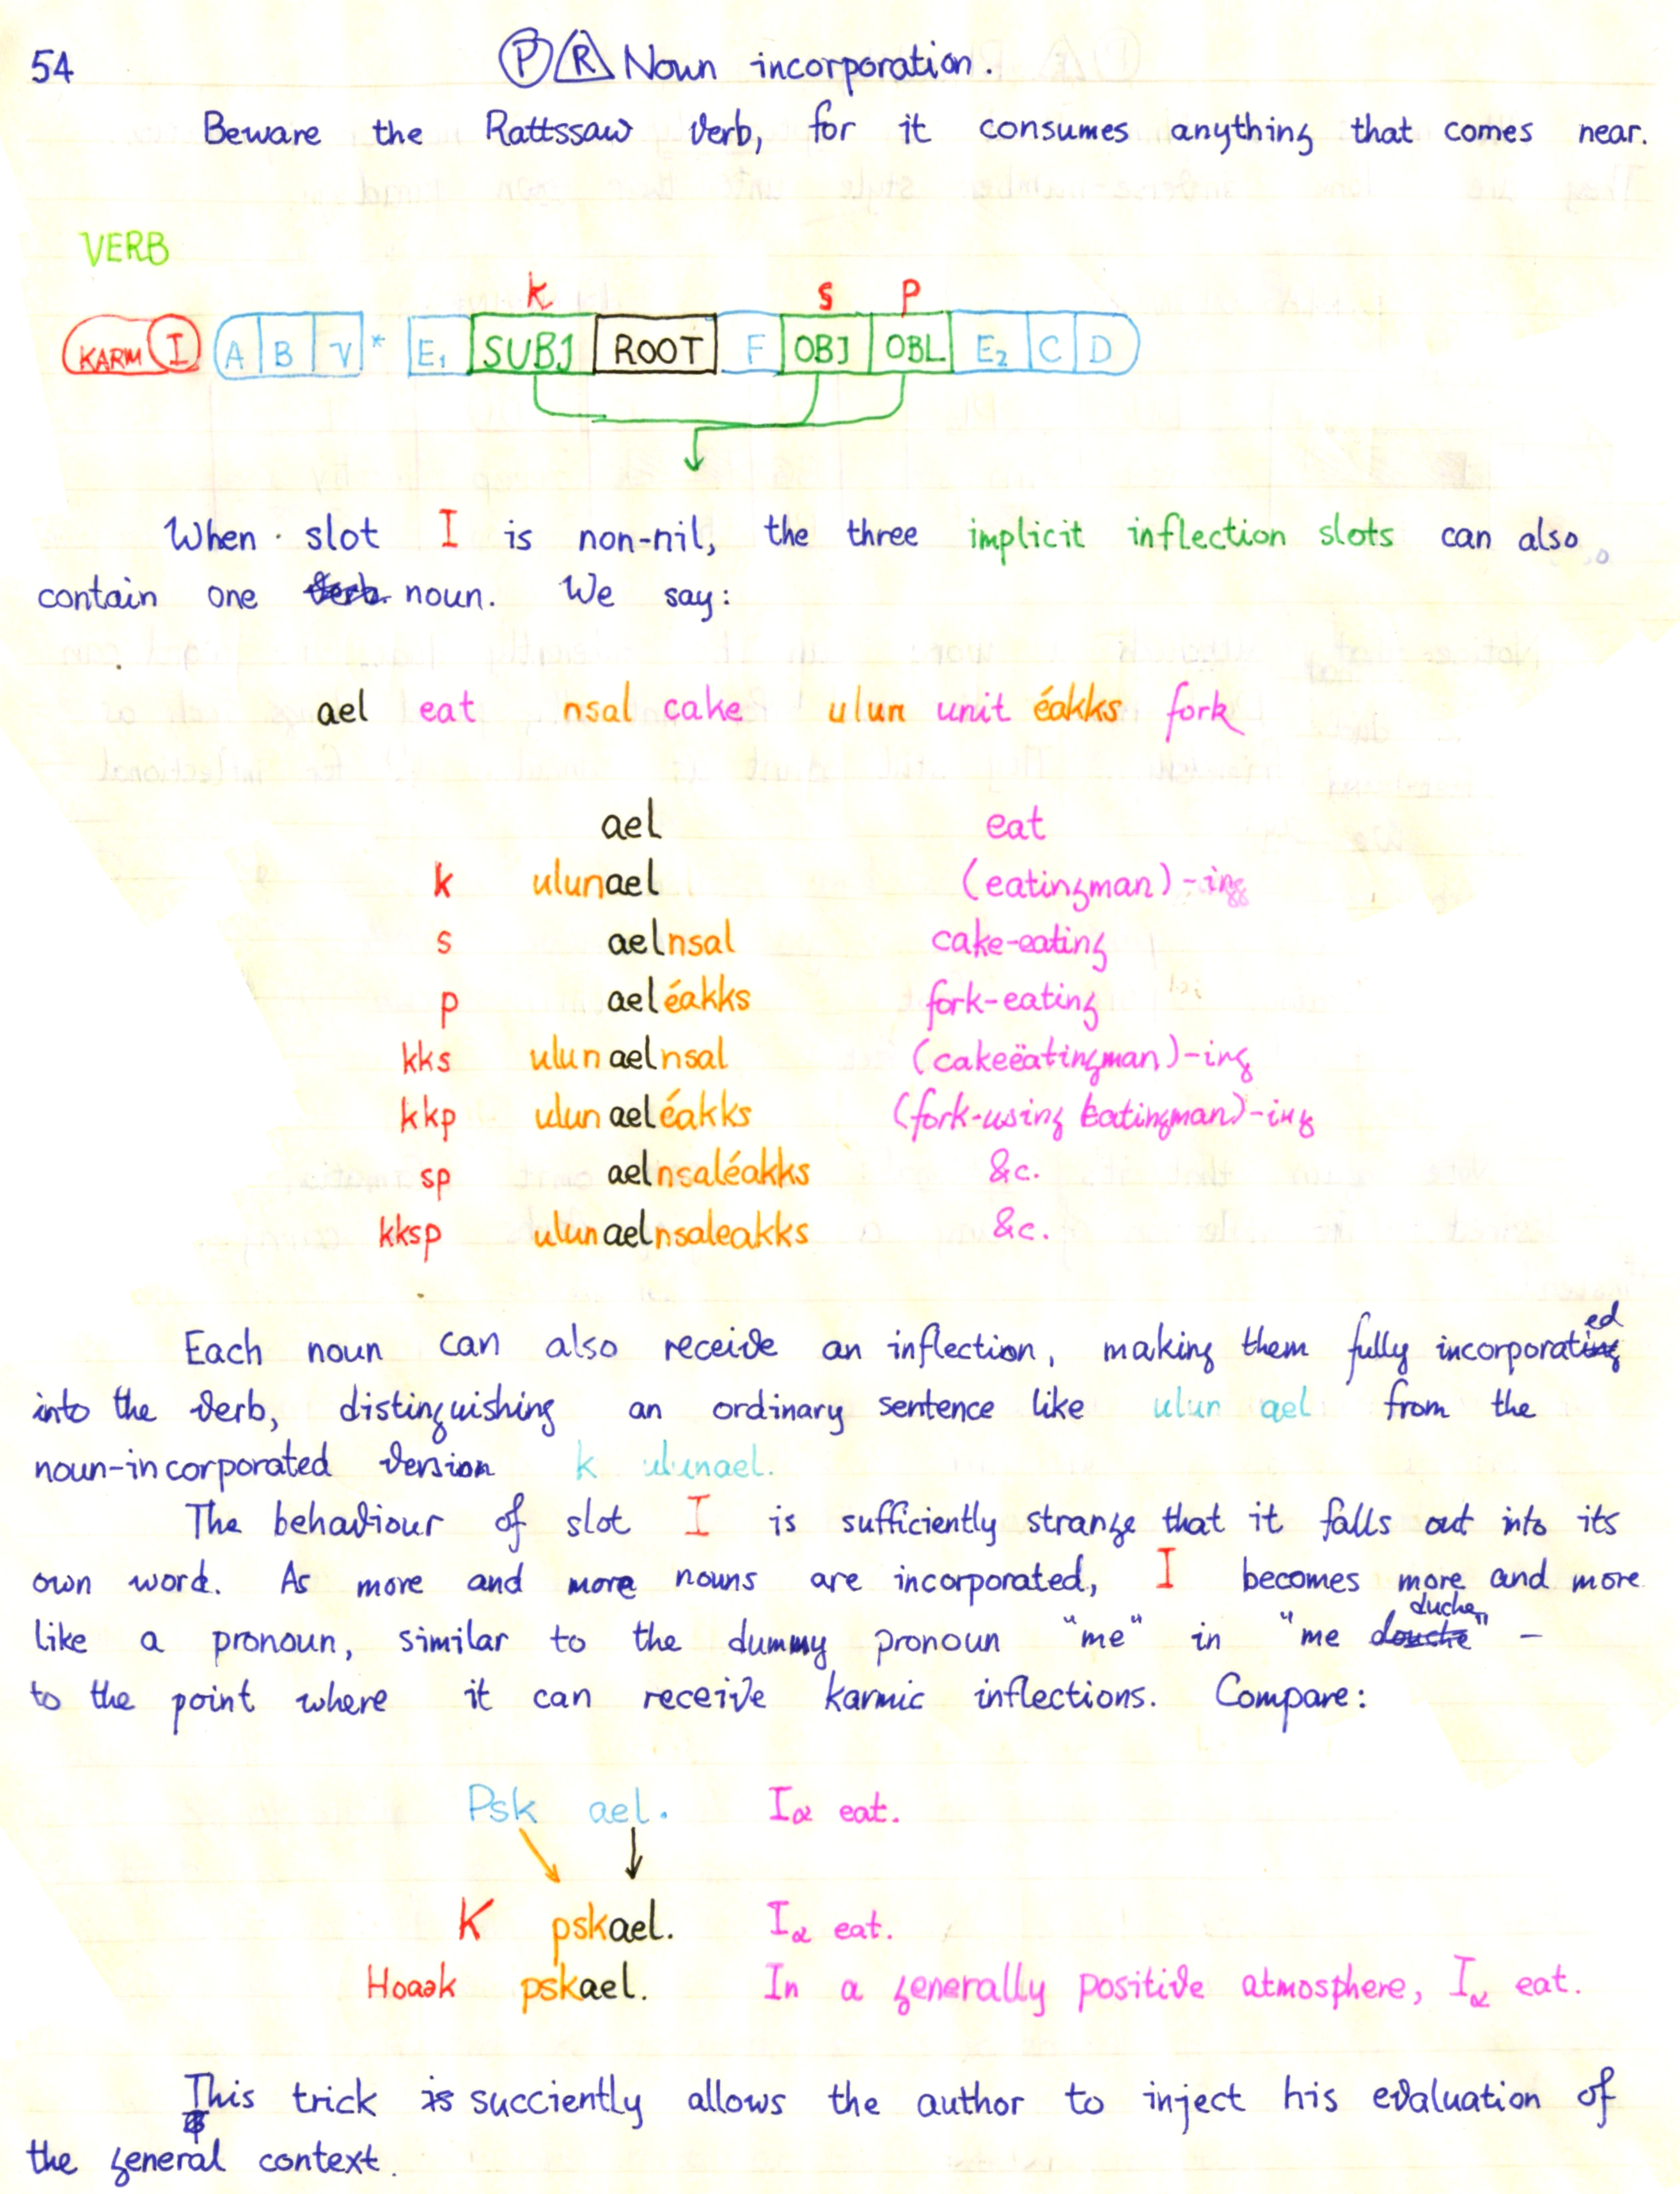 54 Ⓟ R Noun incorporation.
Beware the Rattssaw verb, for it consumes anything that comes near.
VERB
k s p
KARM I A B V * E₁ SUBJ ROOT F OBJ OBL E₂ C D
When slot I is non-nil, the three implicit inflection slots can also
contain one verb noun. We say:
ael eat nsal cake ulun unit éakks fork
ael eat
k ulunael (eatingman)-ing
s aelnsal cake-eating
p aeléakks fork-eating
kks ulunaelnsal (cakeëatingman)-ing
kkp ulunaeléakks (fork-using eatingman)-ing
sp aelnsaléakks &c.
kksp ulunaelnsaleakks &c.
Each noun can also receive an inflection, making them fully incorporated
into the verb, distinguishing an ordinary sentence like ulun ael from the
noun-incorporated version k ulunael.
The behaviour of slot I is sufficiently strange that it falls out into its
own word. As more and more nouns are incorporated, I becomes more and more
like a pronoun, similar to the dummy pronoun "me" in "me douche duche" –
to the point where it can receive karmic inflections. Compare:
Psk ael. Iα eat.
K pskael. Iα eat.
Hoaək pskael. In a generally positive atmosphere, Iα eat.
This trick is succiently allows the author to inject his evaluation of
the general context.